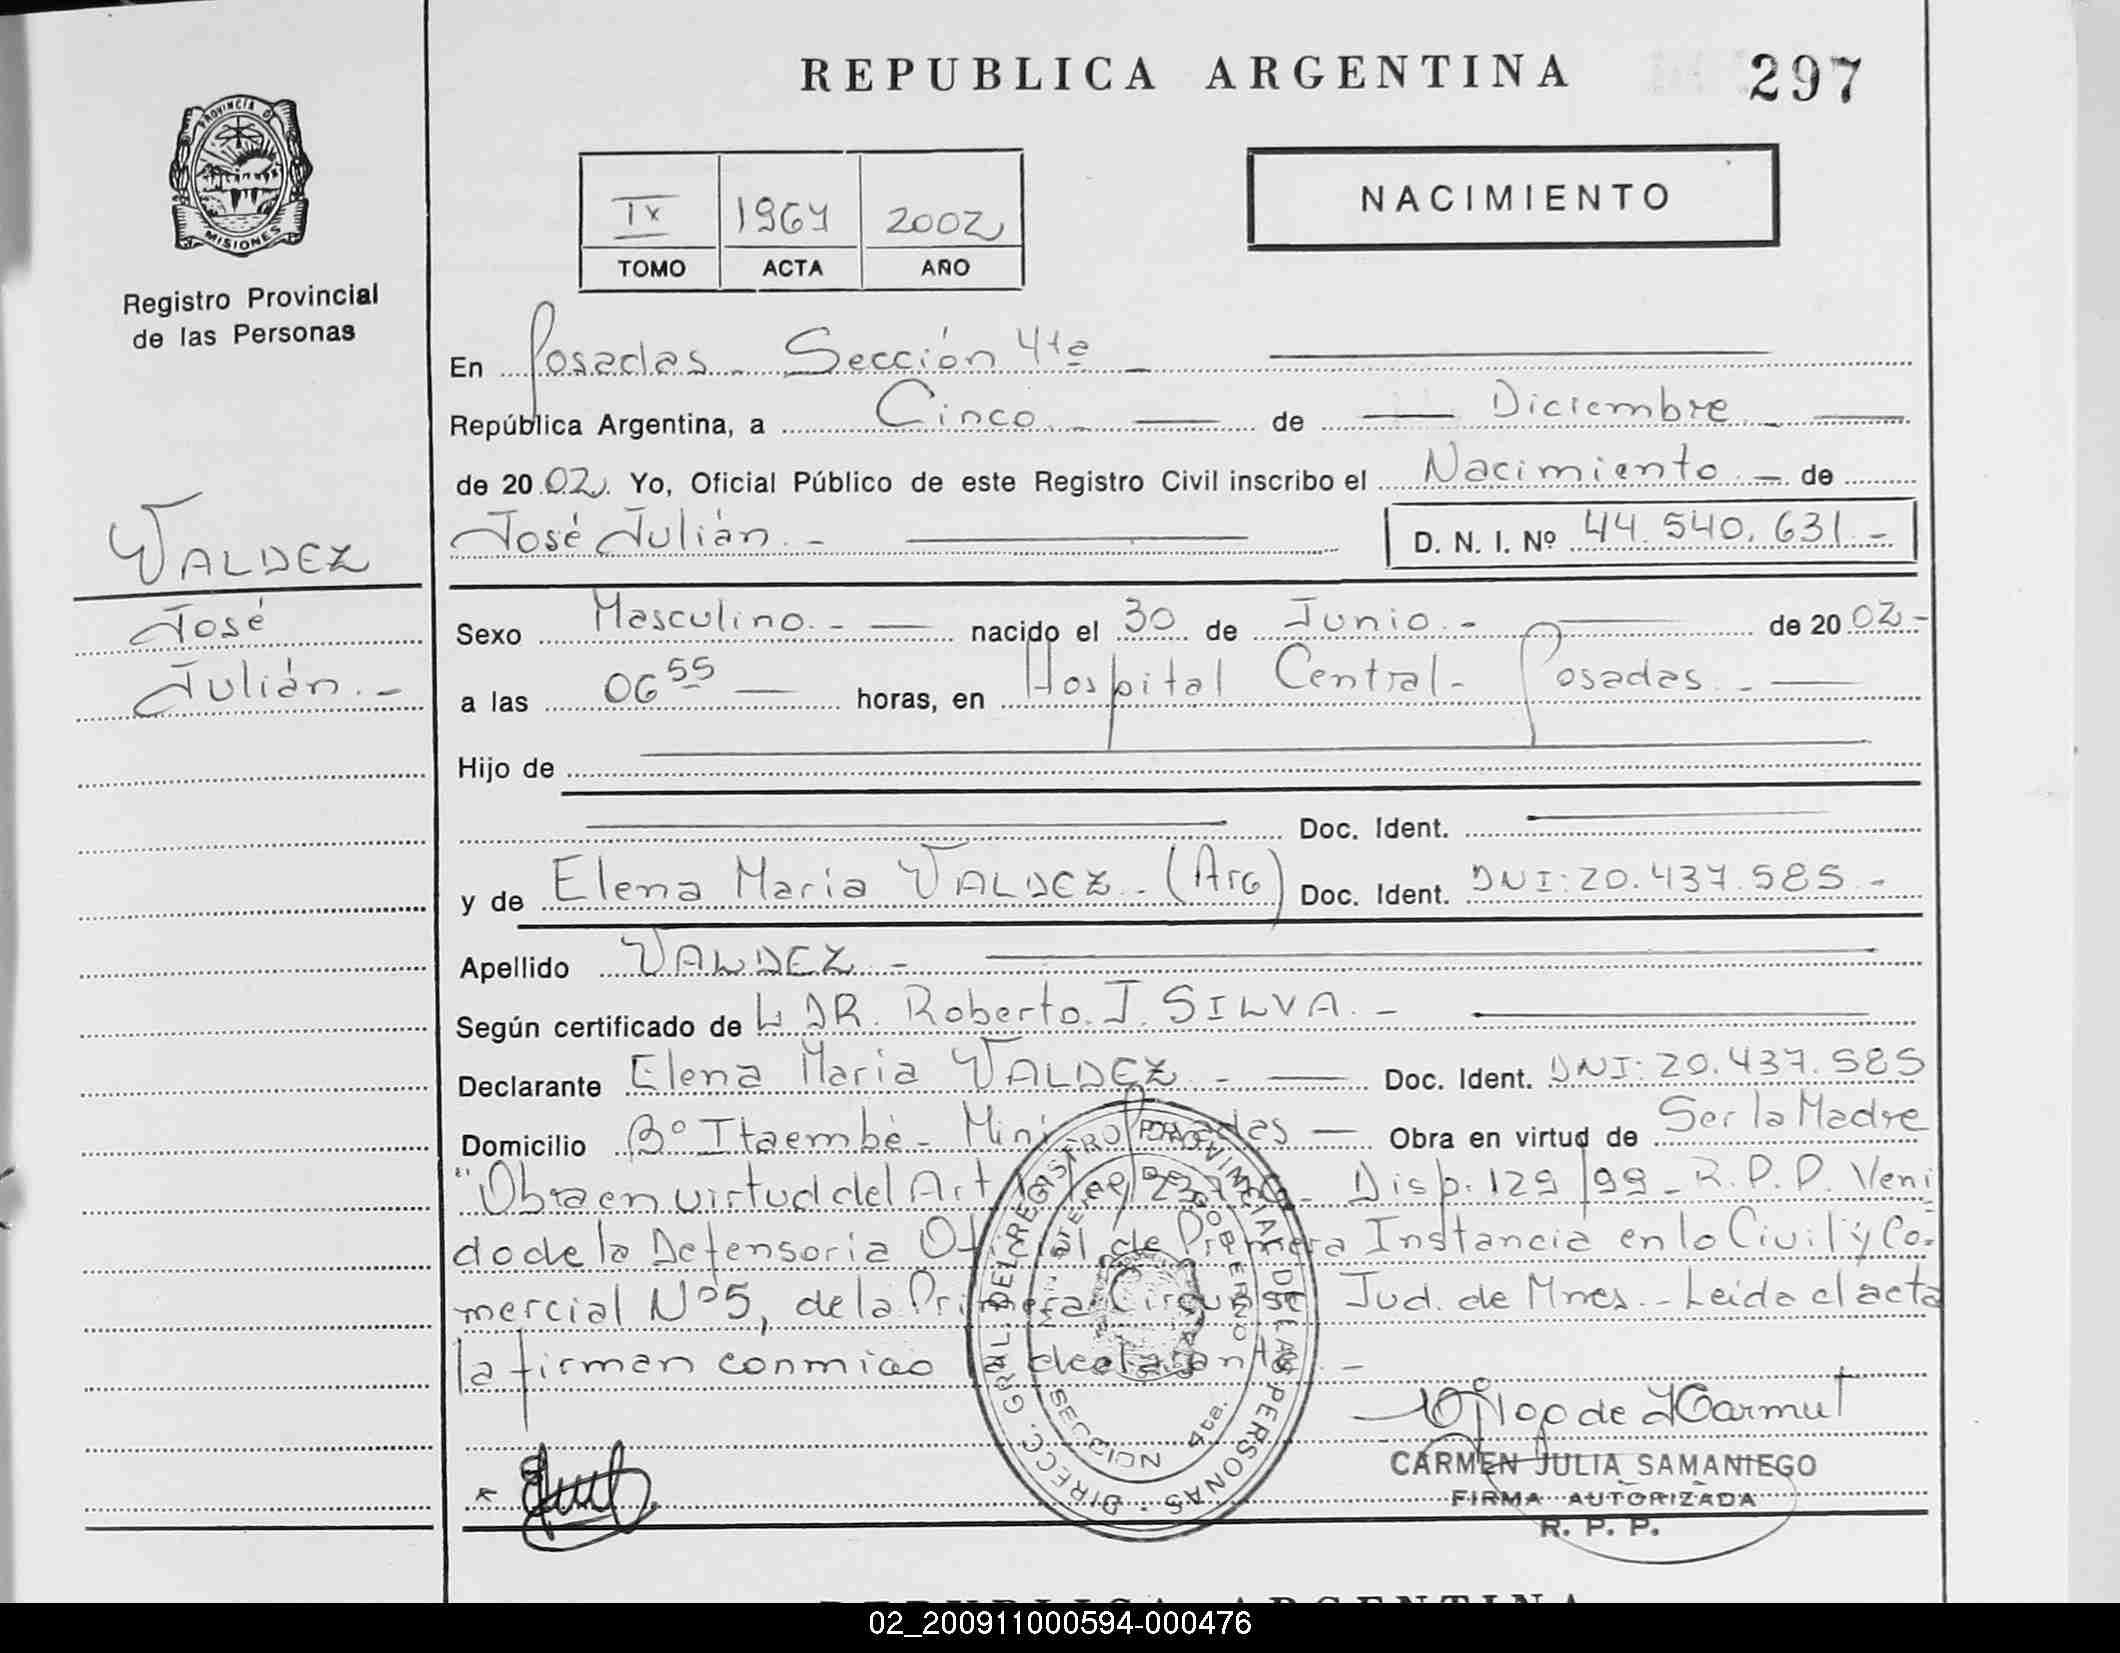 REPUBLICA ARGENTINA 297
PROVINCIA DE
MISIONES
Registro Provincial
de las Personas
IX 1967 2002
TOMO ACTA AÑO
NACIMIENTO
En Posadas - Sección 4ta -
República Argentina, a Cinco - de Diciembre -
de 2002. Yo, Oficial Público de este Registro Civil inscribo el Nacimiento - de
José Julián. - D. N. I. Nº 44.540.631.-
VALDEZ
José
Julián. -
Sexo Masculino. - nacido el 30 de Junio. - de 2002-
a las 06 55 horas, en Hospital Central - Posadas. -
Hijo de
Doc. Ident.
y de Elena Maria VALDEZ. - (Arg) Doc. Ident. DNI: 20.437.585. -
Apellido VALDEZ -
Según certificado de DR. Roberto. J. SILVA. -
Declarante Elena Maria VALDEZ. - Doc. Ident. DNI: 20.437.585
Domicilio Bº Itaembé - Mini Posadas - Obra en virtud de Ser la Madre
"Obra en virtud del Art Disp. 129/99 - R.P.P. Veni
do de la Defensoria Oficial de Primera Instancia en lo Civil y Co-
mercial Nº 5, de la Primera Circunsc. Jud. de Mnes. - Leída el acta
la firman conmigo declarante -
DIRECC. GRAL. DEL REGISTRO PROVINCIAL DE LAS PERSONAS
MINISTERIO DE GOBIERNO
SECCION 4ta.
CARMEN JULIA SAMANIEGO
FIRMA AUTORIZADA
R. P. P.
REPUBLICA ARGENTINA
02_200911000594-000476